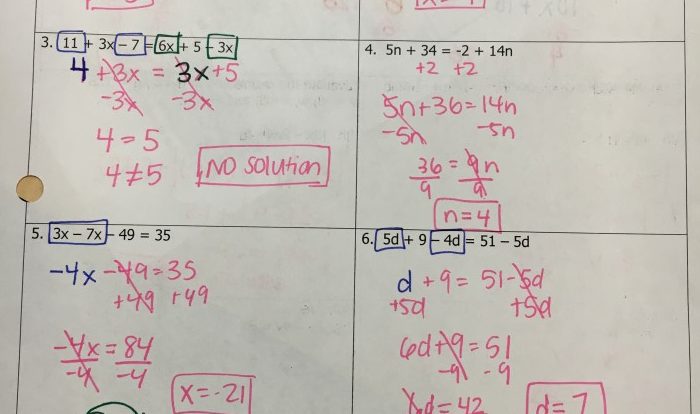 3. 11 + 3x - 7 = 6x + 5 - 3x
4 + 3x = 3x + 5
-3x -3x
4 = 5
4 ≠ 5
NO Solution
4. 5n + 34 = -2 + 14n
+2 +2
5n + 36 = 14n
-5n -5n
36 = 9n
9 9
n = 4
5. 3x – 7x – 49 = 35
-4x - 49 = 35
+49 +49
-4x = 84
-4 -4
x = -21
6. 5d + 9 – 4d = 51 – 5d
d + 9 = 51 - 5d
+5d +5d
6d + 9 = 51
-9 -9
6d = 42
d = 7